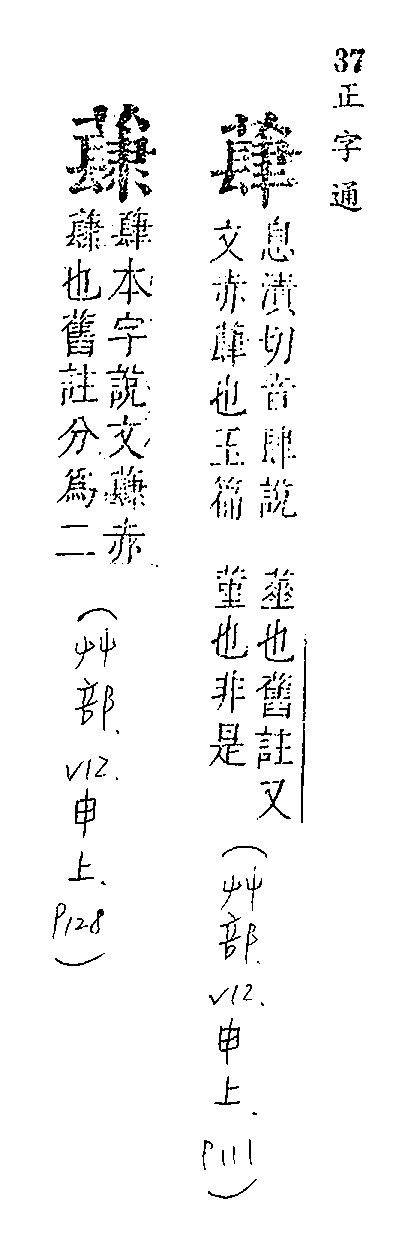 37 正字通
蕼
息漬切音肆說
文赤蕼也玉篇
也舊註又
菫也非是
(艸部. V12. 申上. P111)
本字說文赤
也舊註分為二
(艸部. V12. 申上. P128)